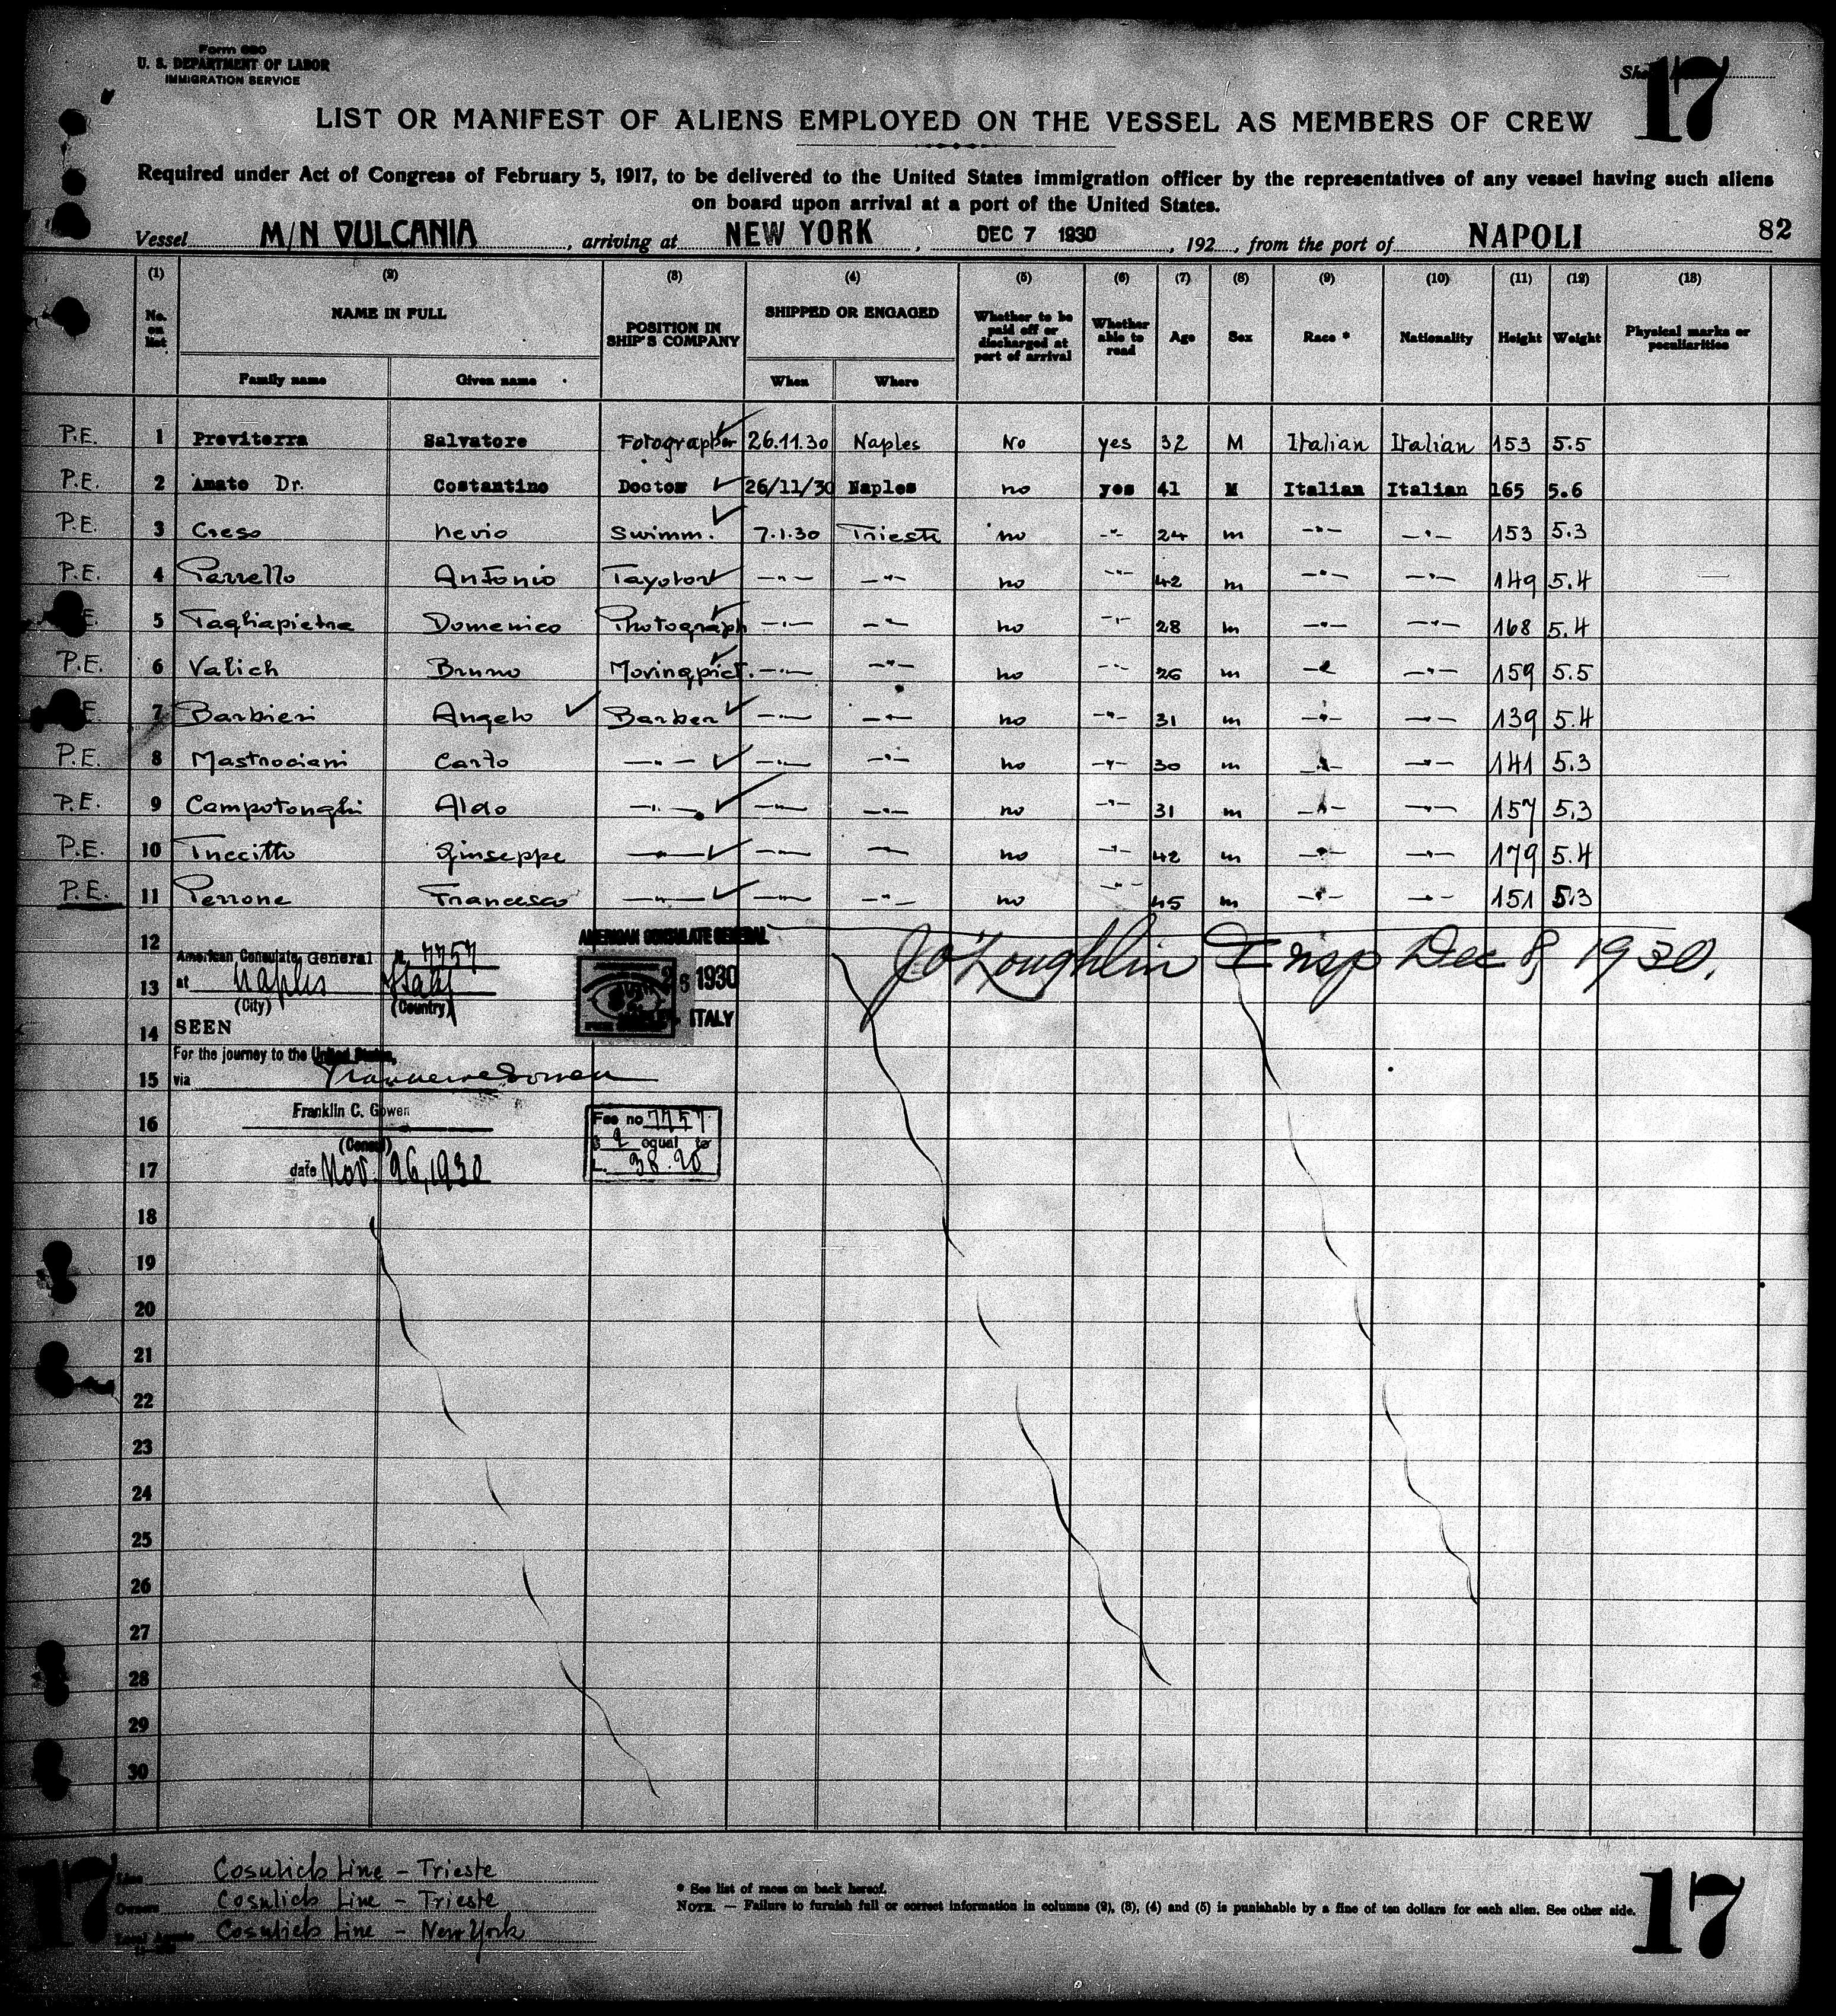 Form 680
U. S. DEPARTMENT OF LABOR
IMMIGRATION SERVICE
17
LIST OR MANIFEST OF ALIENS EMPLOYED ON THE VESSEL AS MEMBERS OF CREW
Required under Act of Congress of February 5, 1917, to be delivered to the United States immigration officer by the representatives of any vessel having such aliens
on board upon arrival at a port of the United States.
Vessel M/N VULCANIA, arriving at NEW YORK, DEC 7 1930, 192, from the port of NAPOLI 82
(1) (2) (3) (4) (5) (6) (7) (8) (9) (10) (11) (12) (13)
No. on list NAME IN FULL POSITION IN SHIP'S COMPANY SHIPPED OR ENGAGED Whether to be paid off or discharged at port of arrival Whether able to read Age Sex Race * Nationality Height Weight Physical marks or peculiarities
Family name Given name When Where
P.E. 1 Previterra Salvatore Fotographer 26.11.30 Naples No yes 32 M Italian Italian 153 5.5
P.E. 2 Amato Dr. Costantino Doctor 26/11/30 Naples no yes 41 M Italian Italian 165 5.6
P.E. 3 Creso Nevio Swimm. 7.1.30 Trieste no -"- 24 m -"- -"- 153 5.3
P.E. 4 Perrello Antonio -"- -"- no -"- 42 m -"- -"- 149 5.4
E. 5 Tagliapietra Domenico Photograph -"- -"- no -"- 28 m -"- -"- 168 5.4
P.E. 6 Valich Bruno Movingpict. -"- -"- no -"- 26 m -"- -"- 159 5.5
E. 7 Barbieri Angelo Barber -"- -"- no -"- 31 m -"- -"- 139 5.4
P.E. 8 Mastrociani Carlo -"- -"- -"- no -"- 30 m -"- -"- 141 5.3
P.E. 9 Campolonghi Aldo -"- -"- -"- no -"- 31 m -"- -"- 157 5.3
P.E. 10 Giuseppe -"- -"- -"- no -"- 42 m -"- -"- 179 5.4
P.E. 11 Perrone Francesco -"- -"- -"- no -"- 45 m -"- -"- 151 5.3
AMERICAN CONSULATE GENERAL
JO'Loughlin Insp Dec 8, 1930.
12
American Consulate General 7757
13 at Naples Italy
(City) (Country)
26 1930
ITALY
14 SEEN
For the journey to the United States,
15 via
Franklin C. Gowen
16
(Consul)
17 date Nov. 26, 1930
Fee no 7757
$ 2 equal to
L. 38.20
18
19
20
21
22
23
24
25
26
27
28
29
30
17
Line Cosulich Line - Trieste
Owners Cosulich Line - Trieste
Local Agents Cosulich Line - New York
* See list of races on back hereof.
NOTE. — Failure to furnish full or correct information in columns (2), (3), (4) and (5) is punishable by a fine of ten dollars for each alien. See other side.
17